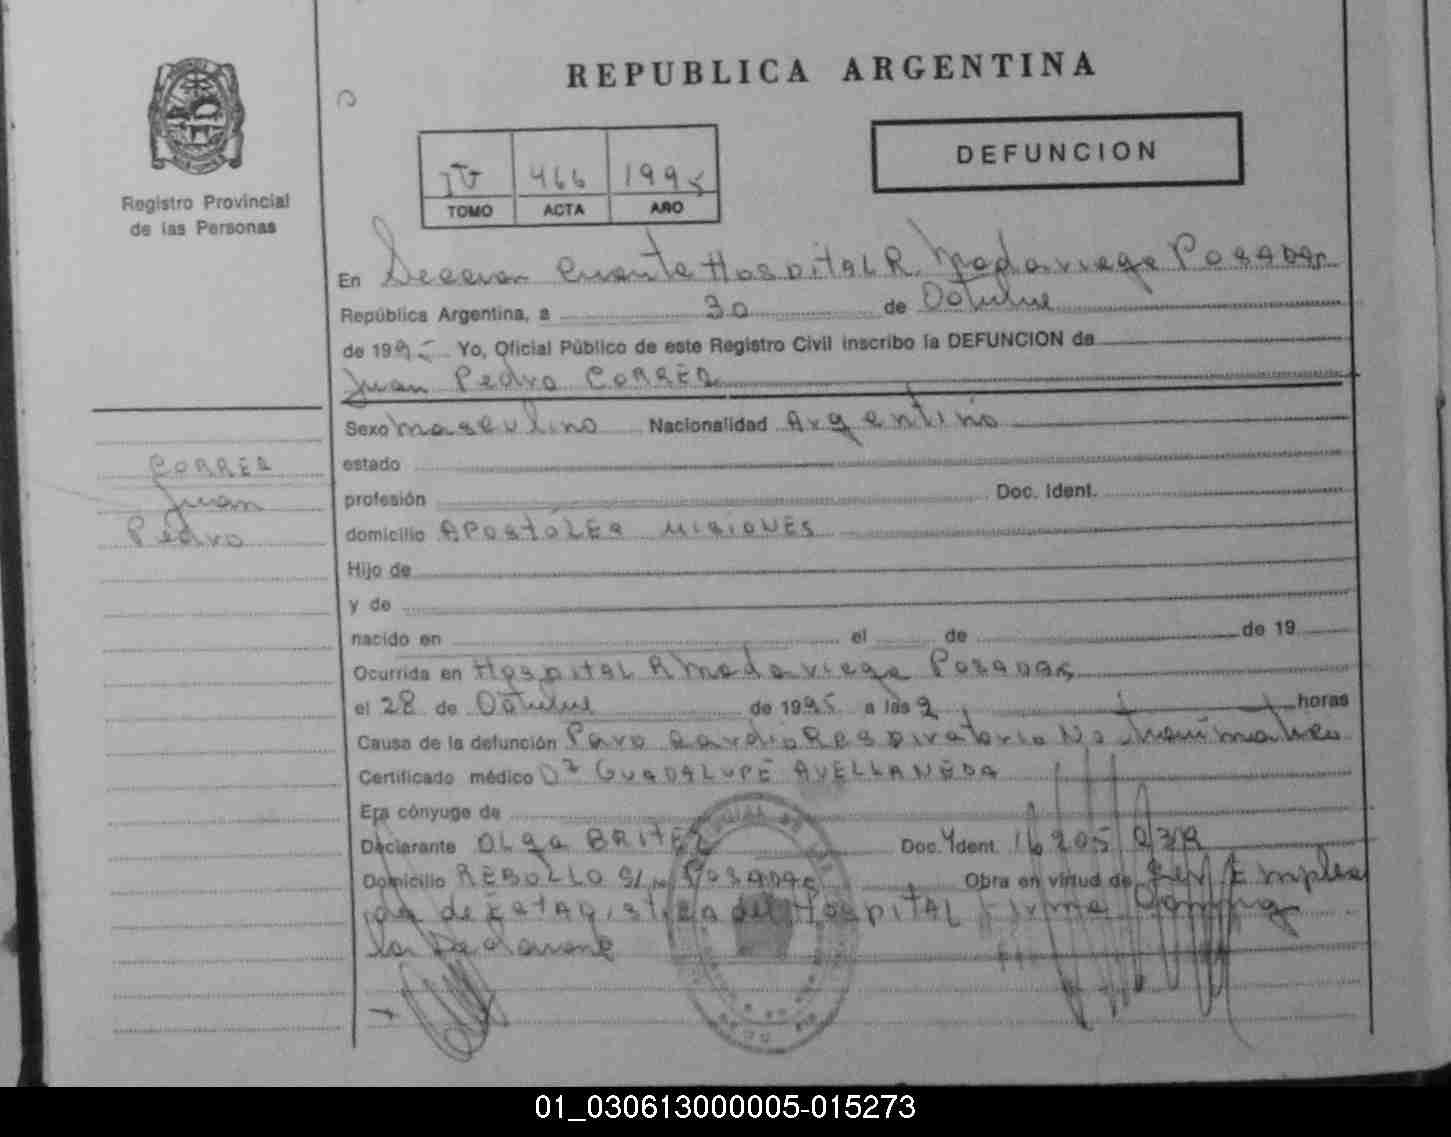 REPUBLICA ARGENTINA
Registro Provincial
de las Personas
IV 466 1995
TOMO ACTA AÑO
DEFUNCION
En Seccion Cuarta HOSPITAL R. Madariaga POSADAS
República Argentina, a 30 de Octubre
de 1995 Yo, Oficial Público de este Registro Civil inscribo la DEFUNCION de
Juan Pedro CORREA
Sexo masculino Nacionalidad Argentino
CORREA
Juan
Pedro
estado
profesión Doc. Ident.
domicilio APOSTOLES MISIONES
Hijo de
y de
nacido en el de de 19
Ocurrida en HOSPITAL R Madariaga POSADAS
el 28 de Octubre de 1995 a las 2 horas
Causa de la defunción Paro cardio Respiratorio No traumatico
Certificado médico Dª GUADALUPE AVELLANEDA
Era cónyuge de
Declarante OLGA BRITEZ Doc. Ident. 16 205
Domicilio REBOLLO S/N POSADAS Obra en virtud de ser Emplea
da de Estadistica del HOSPITAL Firma
la Declarante
01_030613000005-015273